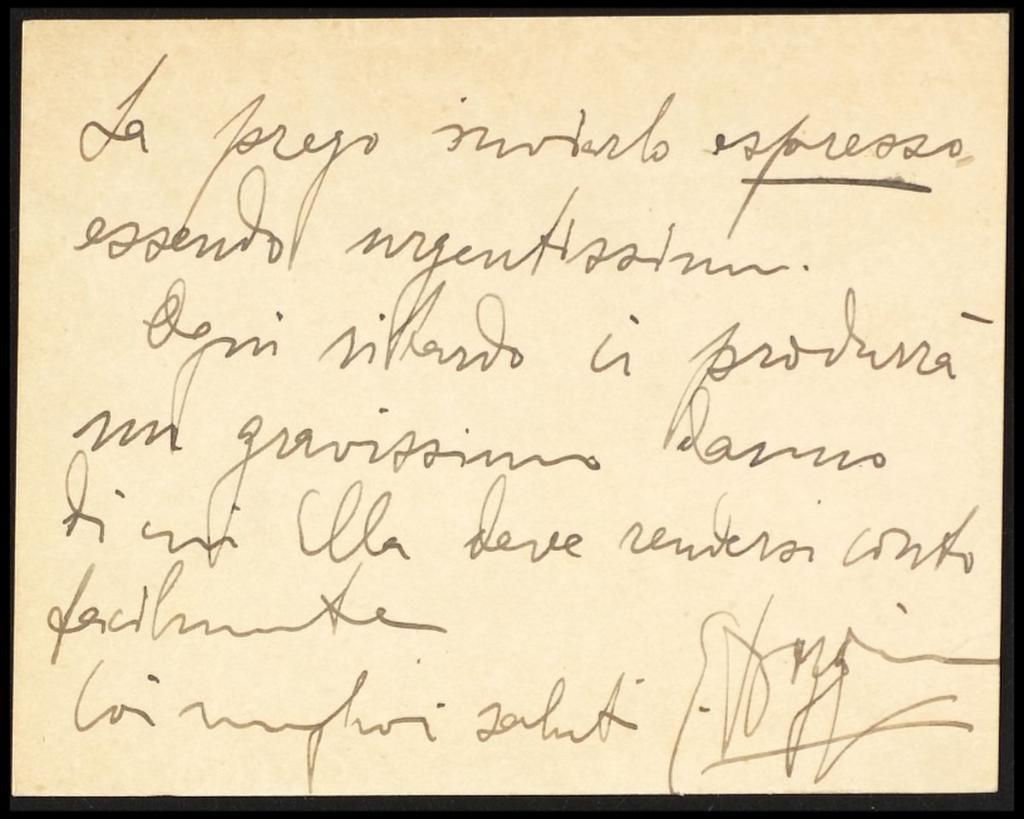 La prego inviarlo espresso
essendo urgentissimo.
Ogni ritardo ci produrrà
un gravissimo danno
di cui Ella deve rendersi conto
facilmente
Coi migliori saluti